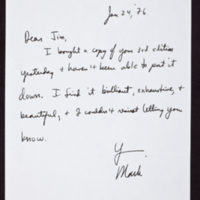 Jan 24, '76
Dear Jim,
I bought a copy of your 3rd edition
yesterday & haven't been able to put it
down. I find it brilliant, exhaustive, &
beautiful, & I couldn't resist letting you
know.
Y
Mark